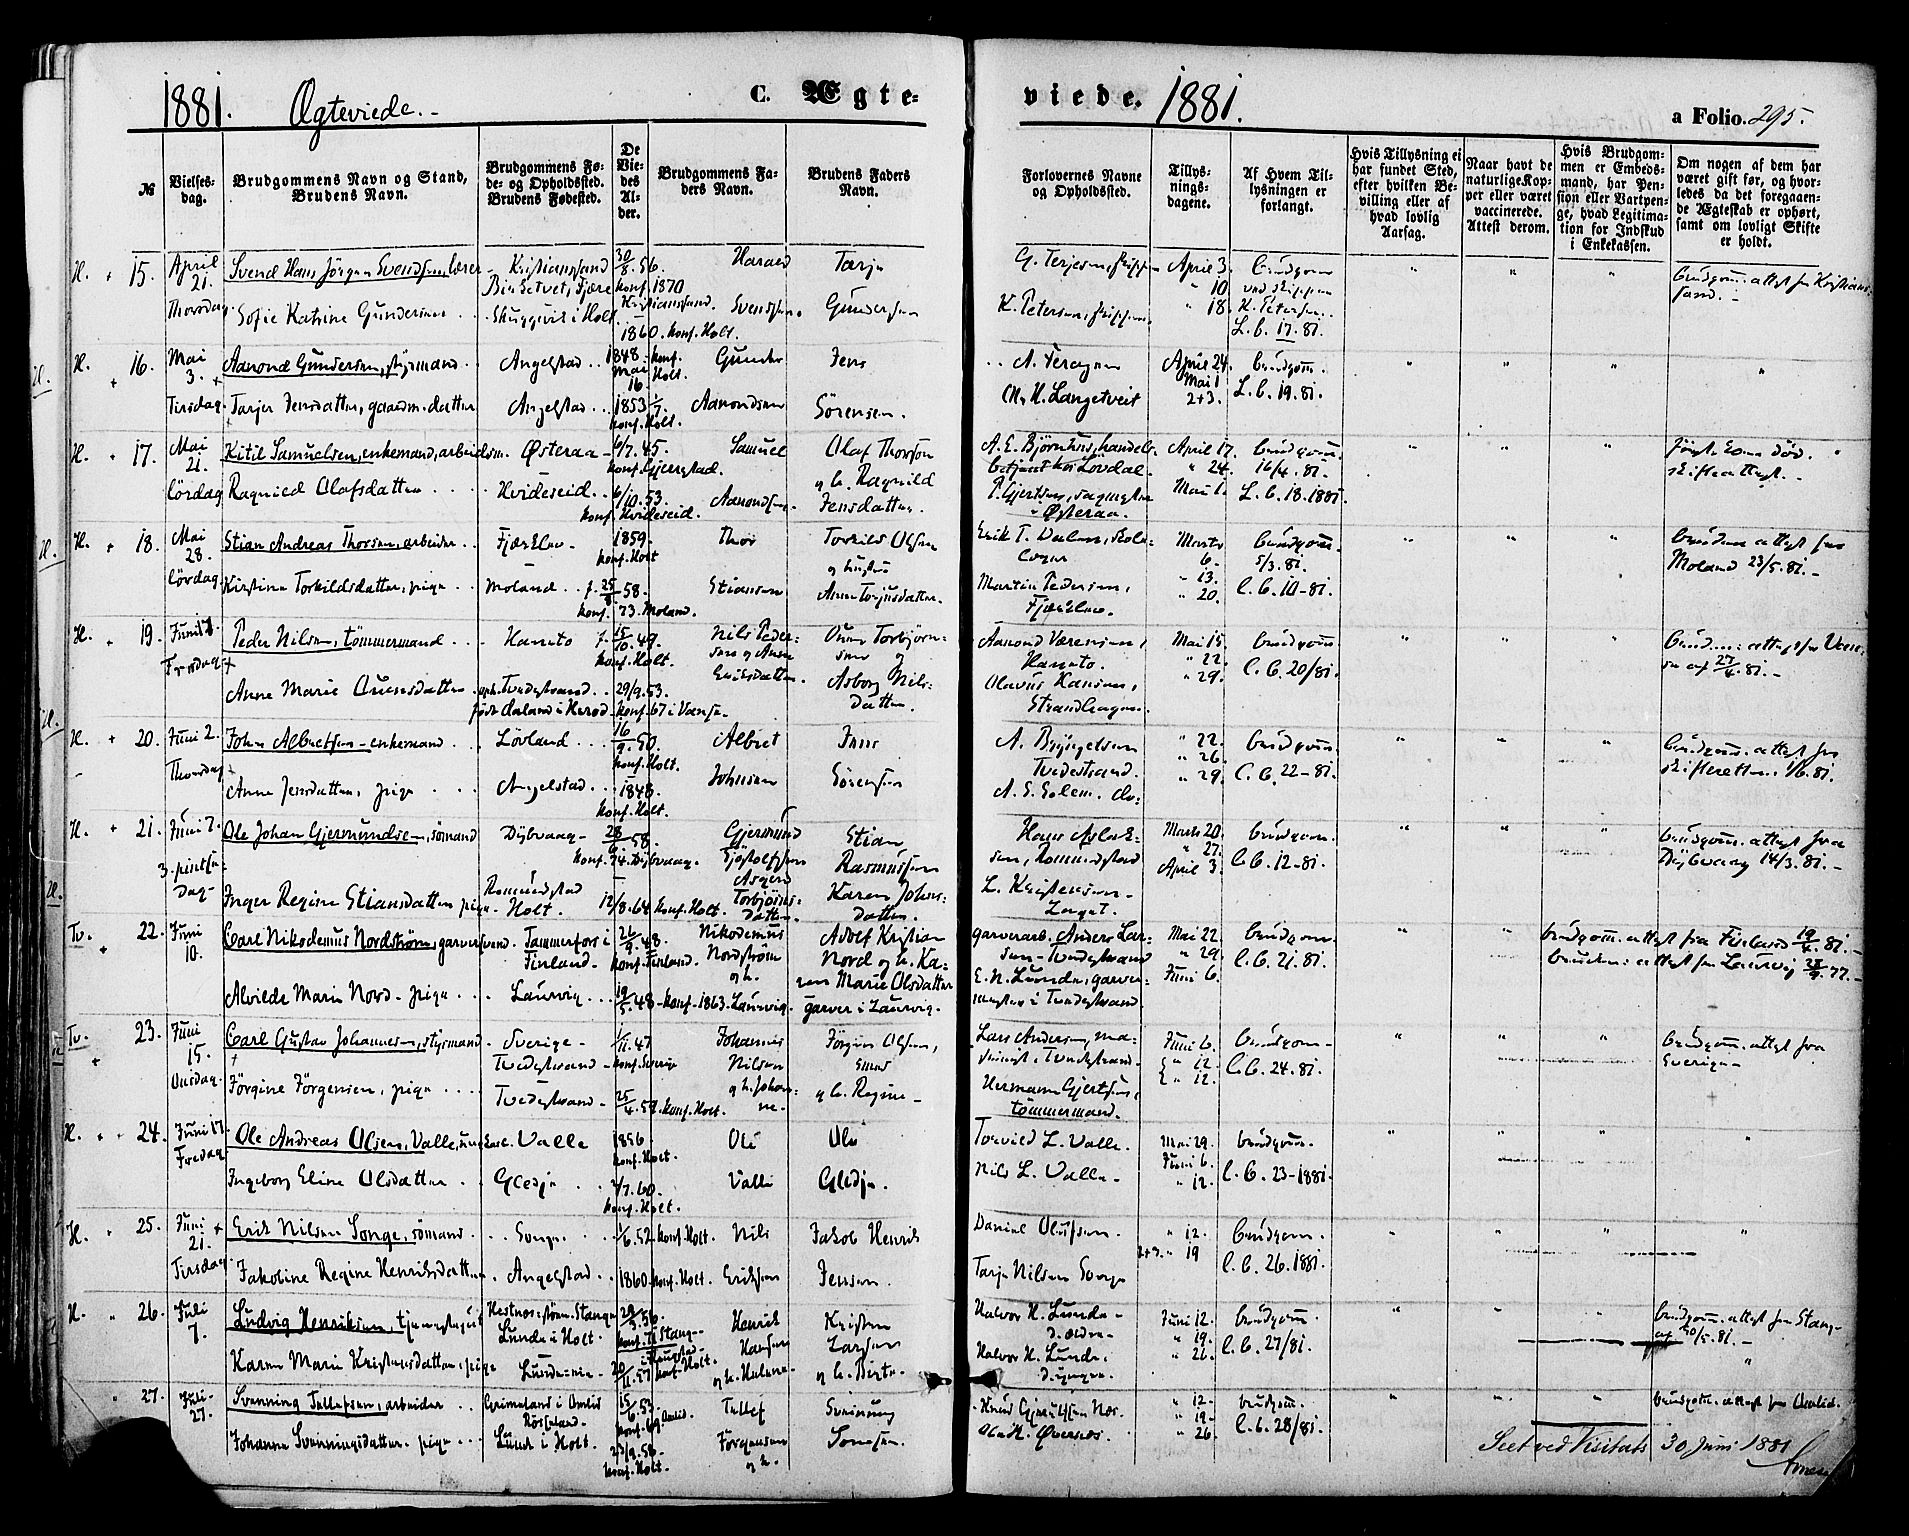 1881. Ægteviede.
C. Ægte-
viede. 1881.
a Folio. 295.
№
Vielses-
dag.
Brudgommens Navn og Stand,
Brudens Navn.
Brudgommens Fø-
de- og Opholdssted.
Brudens Fødested.
De
Vie-
des
Al-
der.
Brudgommens Fa-
ders Navn.
Brudens Faders
Navn.
Forlovernes Navne
og Opholdssted.
Tillys-
nings-
dagene.
Af Hvem Til-
lysningen er
forlangt.
Hvis Tillysning ei
har fundet Sted,
efter hvilken Be-
villing eller af
hvad lovlig
Aarsag.
Naar havt de
naturlige Kop-
per eller været
vaccinerede.
Attest derom.
Hvis Brudgom-
men er Embeds-
mand, har Pen-
sion eller Vartpen-
ge, hvad Legitima-
tion for Indskud
i Enkekassen.
Om nogen af dem har
været gift før, og hvor-
ledes da det foregaaen-
de Ægteskab er ophørt,
samt om lovligt Skifte
er holdt.
H. 15. April 21. Svend Hans Jörgen Svendsen, lærer Kristianssand 30/8.56. Harald Tarje G. Terjesen, April 3. brudgom
konf. 1870 " 10
Thorsdag Sofie Katrine Gundersen Skuggevik i Holt Kristianssand. Svendsen. Gundersen K. Petersen, " 18. K. Petersen.
1860. konf. Holt. L. b. 17. 81.
H. 16. Mai 3. Aanond Gundersen, styrmand Angelstad 1848. konf. Holt. Gunder Jens April 24. brudgom.
Mai 1 L. b. 19. 81.
Tirsdag Tarjer Jensdatter, gaardm. datter Angelstad 1853 Aanondsen Sörensen. H. Langetveit 2+3.
konf. Holt.
H. 17. Mai 21. Kitil Samuelsen, enkemand, arbeidsm. Østeraa 6/7.45. Samuel Olaf Thorson A. E. Björnhus, handels- April 17. brudgom.
konf. Gjerrestad. betjent hos Lovdal " 24. 16/4. 81.
Lördag Ragnild Olafsdatter Hvideseid 6/10.53. Aanondsen. og h. Ragnild Jensdatter P. Gjertsen, Mai 1. L. b. 18. 1881.
konf. Hvideseid. Østeraa.
H. 18. Mai 28. Stian Andreas Thorsen, arbeider Fjærkleo 1859. Thor Torkild Olsen Erik T. Dalen, skole- Marts 6. brudgom.
konf. Holt og hustru 5/3. 81. Moland 23/5. 81.
Lördag Kirstine Torkildsdatter, pige Moland 25/8 58. Stiansen Anne Torjusdatter. Martin Pedersen, " 13. L. b. 10-81.
konf. 73. Moland. " 20.
H. 19. Juni 17. Peder Nilsen, tömmermand Hanto 15/10.49. Nils Peder- Aanond Værensen, Mai 15. brudgom
Fredag konf. Holt. sen og Anne Hanto. " 22.
Eriksdatter. " 29. L. b. 20/81.
Anne Marie Duensdatter oph. Tvedestrand 29/9.53. Asborg Nils- Olavus Hansen,
konf. 67 i Vanse. datter. Strandhagen.
H. 20. Juni 2. Johan Albretsen - enkemand Lövland 16/9.50. Albret Jens A. Bryngelsen " 22. brudgom. brudgom. attest fra
konf. Holt. Tvedestrand. " 26.
Thorsdag Anne Jensdatter, pige Angelstad 1848. Johnsen Sörensen A. S. Solem. do. " 29. L. b. 22-81. skifteretten. 1/6. 81.
konf. Holt.
H. 21. Juni 7. Ole Johan Gjermundsen, sömand Dybvaag 28/6 58. Gjermund Stian Hans Aslak- Marts 20. brudgom. brudgom. attest fra
3. pintse- konf. 74. Dybvaag. Rasmussen sen, Romundstad " 27. Dybvaag 14/3. 81.
dag Asgerd April 3. L. b. 12-81.
Inger Regine Stiansdatter pige Romundstad Holt. 12/8.64. konf. Holt. Torbjörns- datter. Karen Johns- datter. L. Kristensen
Tv. 22. Juni 10. Carl Nikodemus Nordström, garversvend. Tammerfors i Finland. 26/9.48. Nikodemus Adolf Kristian garverarb. Anders Lar- Mai 22. brudgom. brudgom. attest fra Finland 19/4. 81.
konf. Finland. Nordström Nord og h. Ka- sen - Tvedestrand " 29. L. b. 21. 81. bruden: attest fra Laurvig 28/9. 77.
og h. ren Marie Olsdatter E. N. Lunde, garver- Juni 6.
Alvilde Marie Nord - pige Laurvig 19/5.48 - konf. 1863. Laurvig. garver i Laurvig. mester i Tvedestrand
Tv. 23. Juni 15. Carl Gustav Johannesen, styrmand Sverige - Tvedestrand 1/11.47 Johannes Jörgen Olsen, Lars Andersen, Juni 6. brudgom. brudgom. attest fra
konf. Sverige Nilsen smed Tvedestrand " 12. L. b. 24. 81. Sverige
Onsdag. Jörgine Jörgensen, pige Tvedestrand 25/4.57. konf. Holt. og h. Johan- ne. og h. Regine Hermann Gjertsen, " 12.
tömmermand.
H. 24. Juni 17. Ole Andreas Olsen, Valle, ungkarl. Valle 1856. Ole Ole Torvild L. Valle. Mai 29. brudgom.
Fredag konf. Holt. Juni 6.
Ingeborg Eline Olsdatter Gledje 2/7.60. Valle Gledje. Nils L. Valle. " 12. L. b. 23-1881.
konf. Holt.
H. 25. Juni 21. Erik Nilsen Songe, sömand Songe 1/6.52 konf. Holt. Nils Jakob Henrik Daniel Olufsen. " 12. brudgom.
Tirsdag Jakobine Regine Henriksdatter Angelstad 1860. konf. Holt. Eriksen Jensen. Tarje Nilsen Songe 2+3. " 19 L. b. 26. 1881.
H. 26. Juli 7. Ludvig Henriksen, Lunde i Holt. 29/3.56. Henrik Kristen Halvor H. Lunde - d. ældre Juni 12. brudgom. brudgom. attest fra Stang-
Hansen Larsen " 19. L. b. 27/81. af 30/5. 81.
Karen Marie Kristensdatter, pige 20/11.57 konf. Holt. og h. Helene og h. Birte Halvor H. Lunde. d. yngre. " 26.
27. Juli 27. Svenning Tellefsen, arbeider Grimeland i Omlid 15/6.53. Tellef Svenning Knud Gjeruldsen Næs. " 12. brudgom. brudgom. attest fra Omlid.
konf. 69. Omlid. " 19.
Johanne Svenningsdatter. pige Lunde i Holt. 23/9.58. Jörgensen og h. Ole H. Øvernes. " 26. L. b. 28/81.
konf. Holt.
Seet ved Visitats 30 Juni 1881